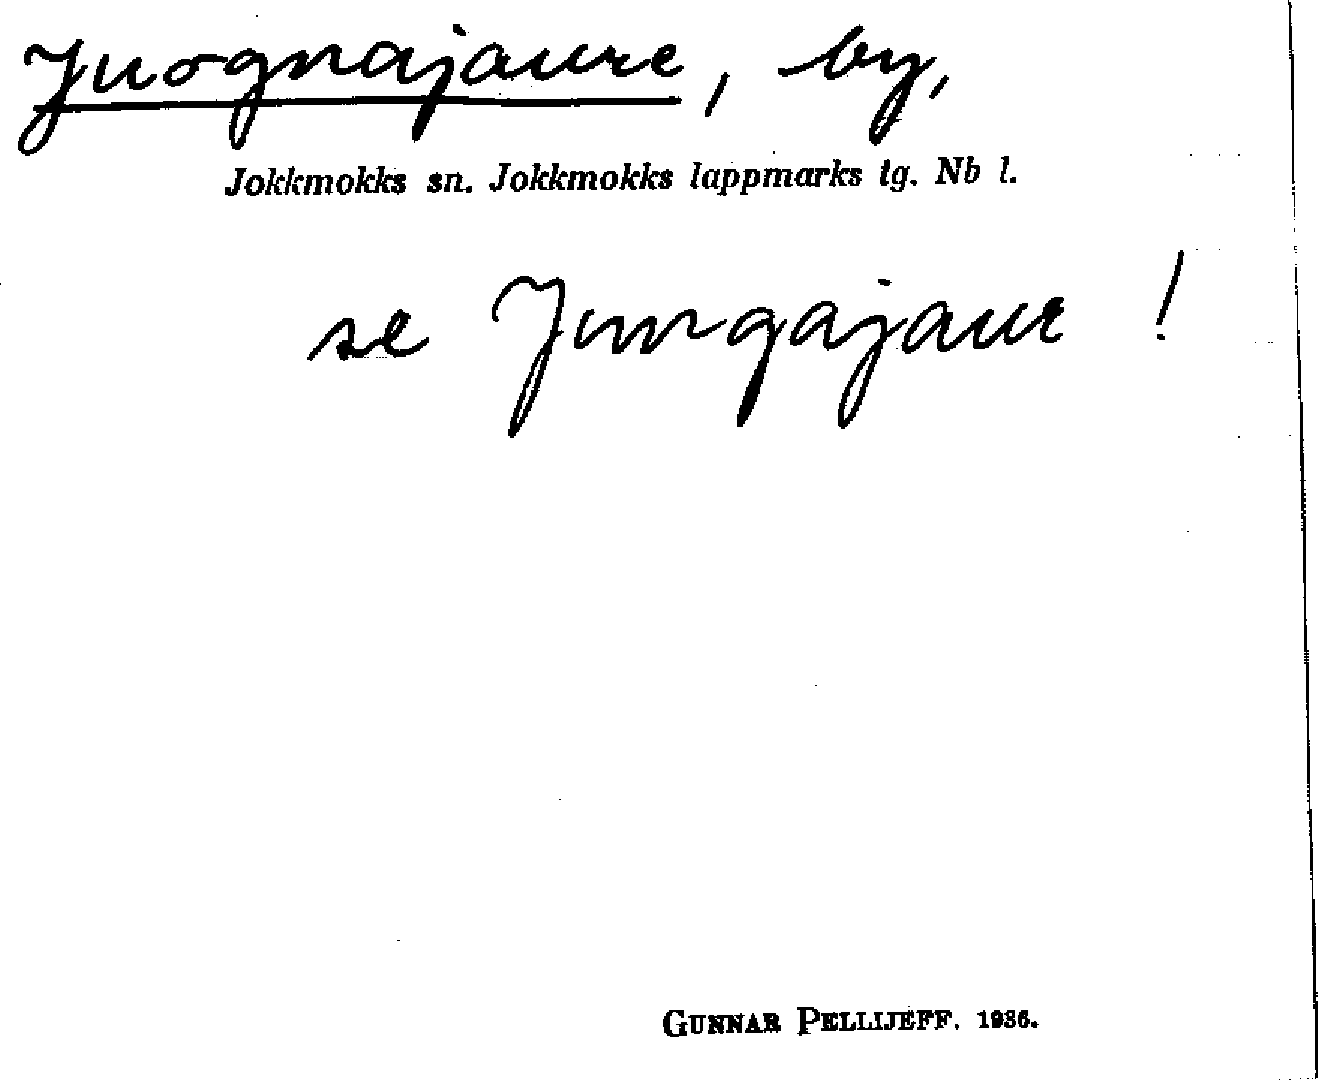 Juognajaure, by,
Jokkmokks sn. Jokkmokks lappmarks tg. Nb l.
se Jungajaure !
GUNNAR PELLIJEFF. 1936.